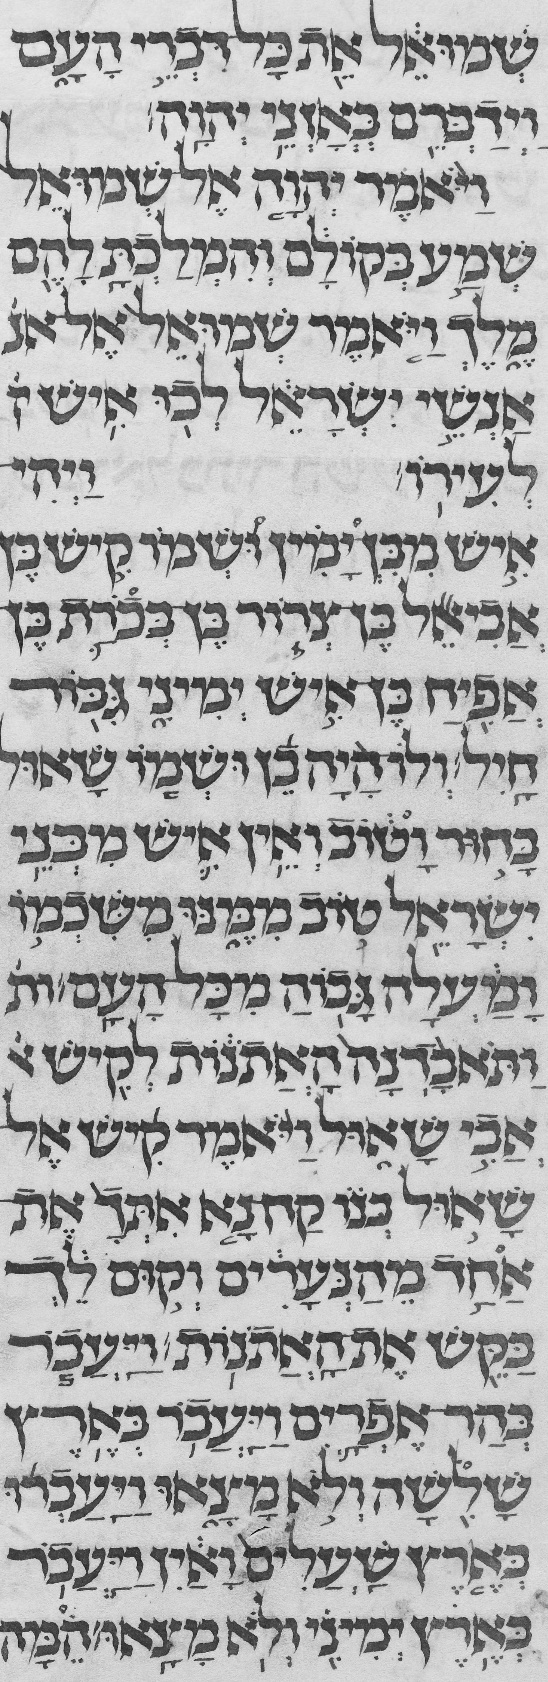 שְׁמוּאֵ֔ל אֵ֖ת כָּל־דִּבְרֵ֣י הָעָ֑ם
וַֽיְדַבְּרֵ֖ם בְּאָזְנֵ֥י יְהוָֽה׃
וַיֹּ֨אמֶר יְהוָ֤ה אֶל־שְׁמוּאֵל֙
שְׁמַ֣ע בְּקוֹלָ֔ם וְהִמְלַכְתָּ֥ לָהֶ֖ם
מֶ֑לֶךְ וַיֹּ֤אמֶר שְׁמוּאֵל֙ אֶל־אנ
אַנְשֵׁ֣י יִשְׂרָאֵ֔ל לְכ֖וּ אִ֥ישׁ
לְעִירֽוֹ׃ וַֽיְהִי־
אִ֣ישׁ מִבִּן־יָמִ֗ין וּ֠שְׁמוֹ קִ֣ישׁ בֶּן־
אֲבִיאֵ֞ל בֶּן־צְר֧וֹר בֶּן־בְּכוֹרַ֛ת בֶּן־
אֲפִ֖יחַ בֶּן־אִ֣ישׁ יְמִינִ֑י גִּבּ֖וֹר
חָֽיִל׃ וְלוֹ־הָיָ֨ה בֵ֜ן וּשְׁמ֤וֹ שָׁאוּל֙
בָּח֣וּר וָט֔וֹב וְאֵ֥ין אִ֛ישׁ מִבְּנֵ֥י
יִשְׂרָאֵ֖ל ט֣וֹב מִמֶּ֑נּוּ מִשִּׁכְמ֣וֹ
וָמַ֔עְלָה גָּבֹ֖וֹהַ מִכָּל־הָעָֽם׃ ות
וַתֹּאבַ֙דְנָה֙ הָאֲתֹנ֔וֹת לְקִ֖ישׁ א
אֲבִ֣י שָׁא֑וּל וַיֹּ֨אמֶר קִ֜ישׁ אֶל־
שָׁא֣וּל בְּנ֗וֹ קַח־נָ֤א אִתְּךָ֙ אֶת־
אַחַ֣ד מֵֽהַנְּעָרִ֔ים וְק֣וּם לֵ֔ךְ
בַּקֵּ֖שׁ אֶת־הָאֲתֹנֽוֹת׃ וַיַּעֲבֹ֧ר
בְּהַר־אֶפְרַ֛יִם וַיַּעֲבֹ֥ר בְּאֶֽרֶץ־
שָׁלִ֖שָׁה וְלֹ֣א מָצָ֑אוּ וַיַּעַבְר֤וּ
בְאֶֽרֶץ־שַׁעֲלִים֙ וָאַ֔יִן וַיַּעֲבֹ֥ר
בְּאֶֽרֶץ־יְמִינִ֖י וְלֹ֥א מָצָֽאוּ׃ הֵ֗מָּה